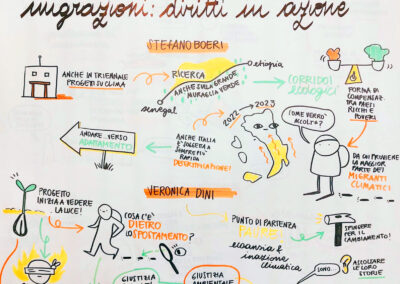 migrazioni: diritti in azione
STEFANO BOERI
ANCHE IN TRIENNALE
PROGETTI SU CLIMA
RICERCA
ANCHE SULLA GRANDE
MURAGLIA VERDE
senegal
etiopia
CORRIDOI
ecologici
FORMA DI
COMPENSAZ.
TRA PAESI
RICCHI E
POVERI
ANDARE VERSO
ADATTAMENTO
ANCHE ITALIA
È SOGGETTA A
SEMPRE PIÙ
RAPIDA
DESERTIFICAZIONE!
2022 → 2023
COME VERRÒ
ACCOLTO?
DA CUI PROVIENE
LA MAGGIOR
PARTE DEI
MIGRANTI
CLIMATICI!
VERONICA DINI
PROGETTO
INIZIA A VEDERE
LA LUCE!
COSA C'È
DIETRO
LO SPOSTAMENTO?
PUNTO DI PARTENZA
PAURE
ecoansia &
inazione
climatica
SPINGERE
PER IL
CAMBIAMENTO!
GIUSTIZIA
GIUSTIZIA
AMBIENTALE
SONO...
ASCOLTARE
LE LORO
STORIE